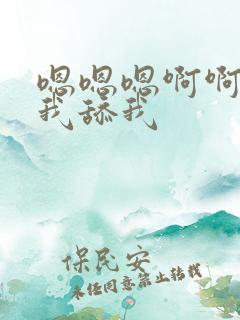 嗯嗯嗯啊啊
我舔我
保民安
未经同意禁止转载